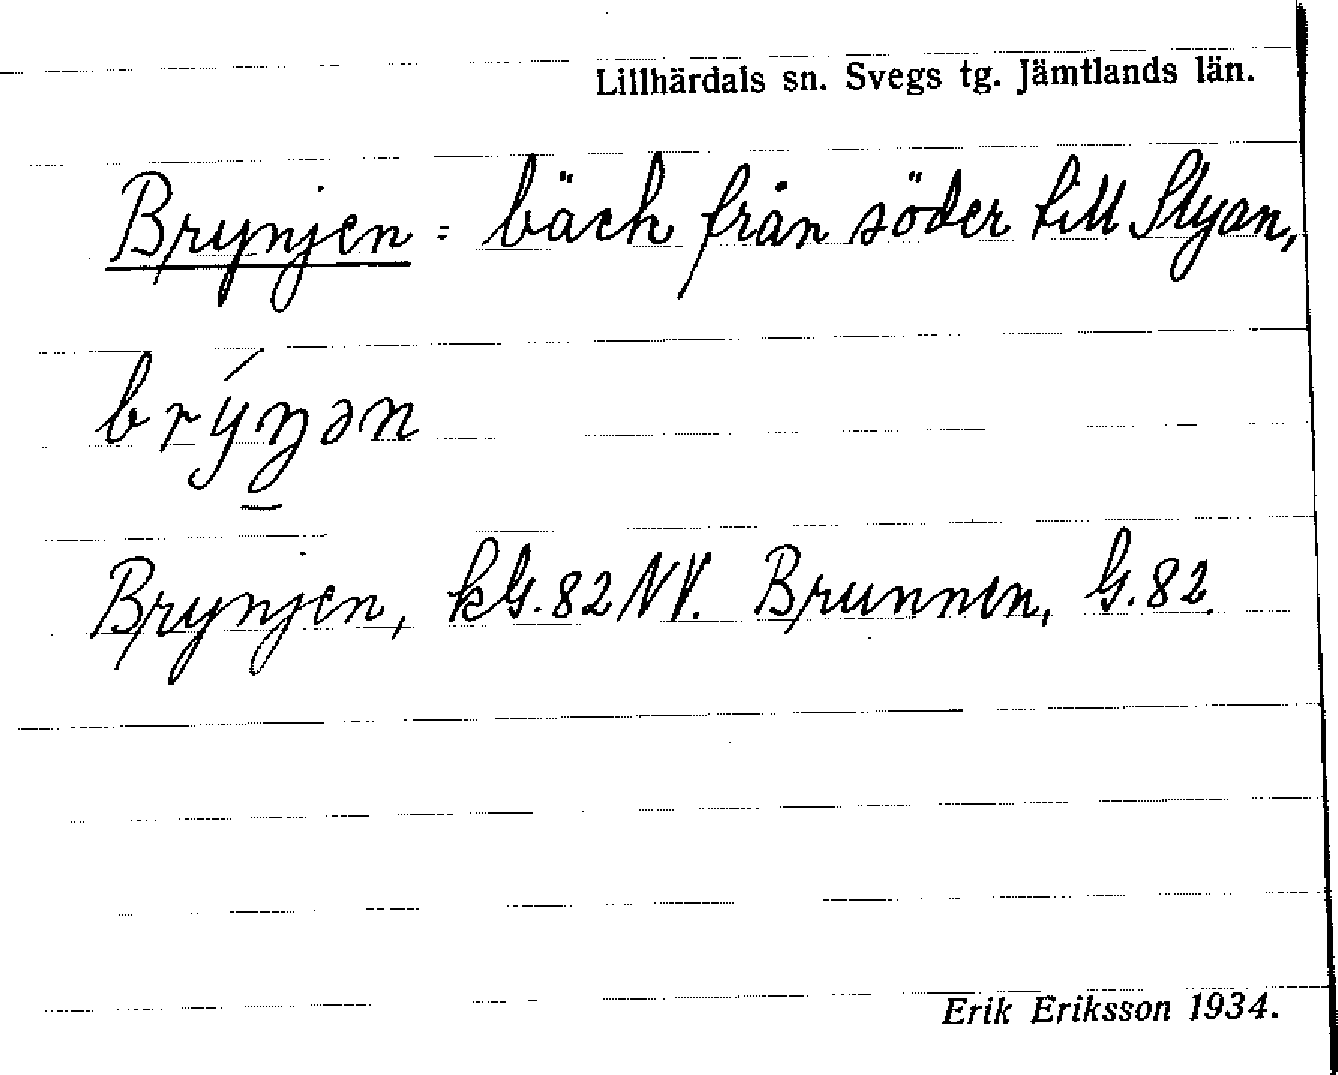 Lillhärdals sn. Svegs tg. Jämtlands län.
Brynjen = bäck från söder till Slyan,
brýŋən
Brynjen, kG. 82 NV. Brunnen, G. 82.
Erik Eriksson 1934.